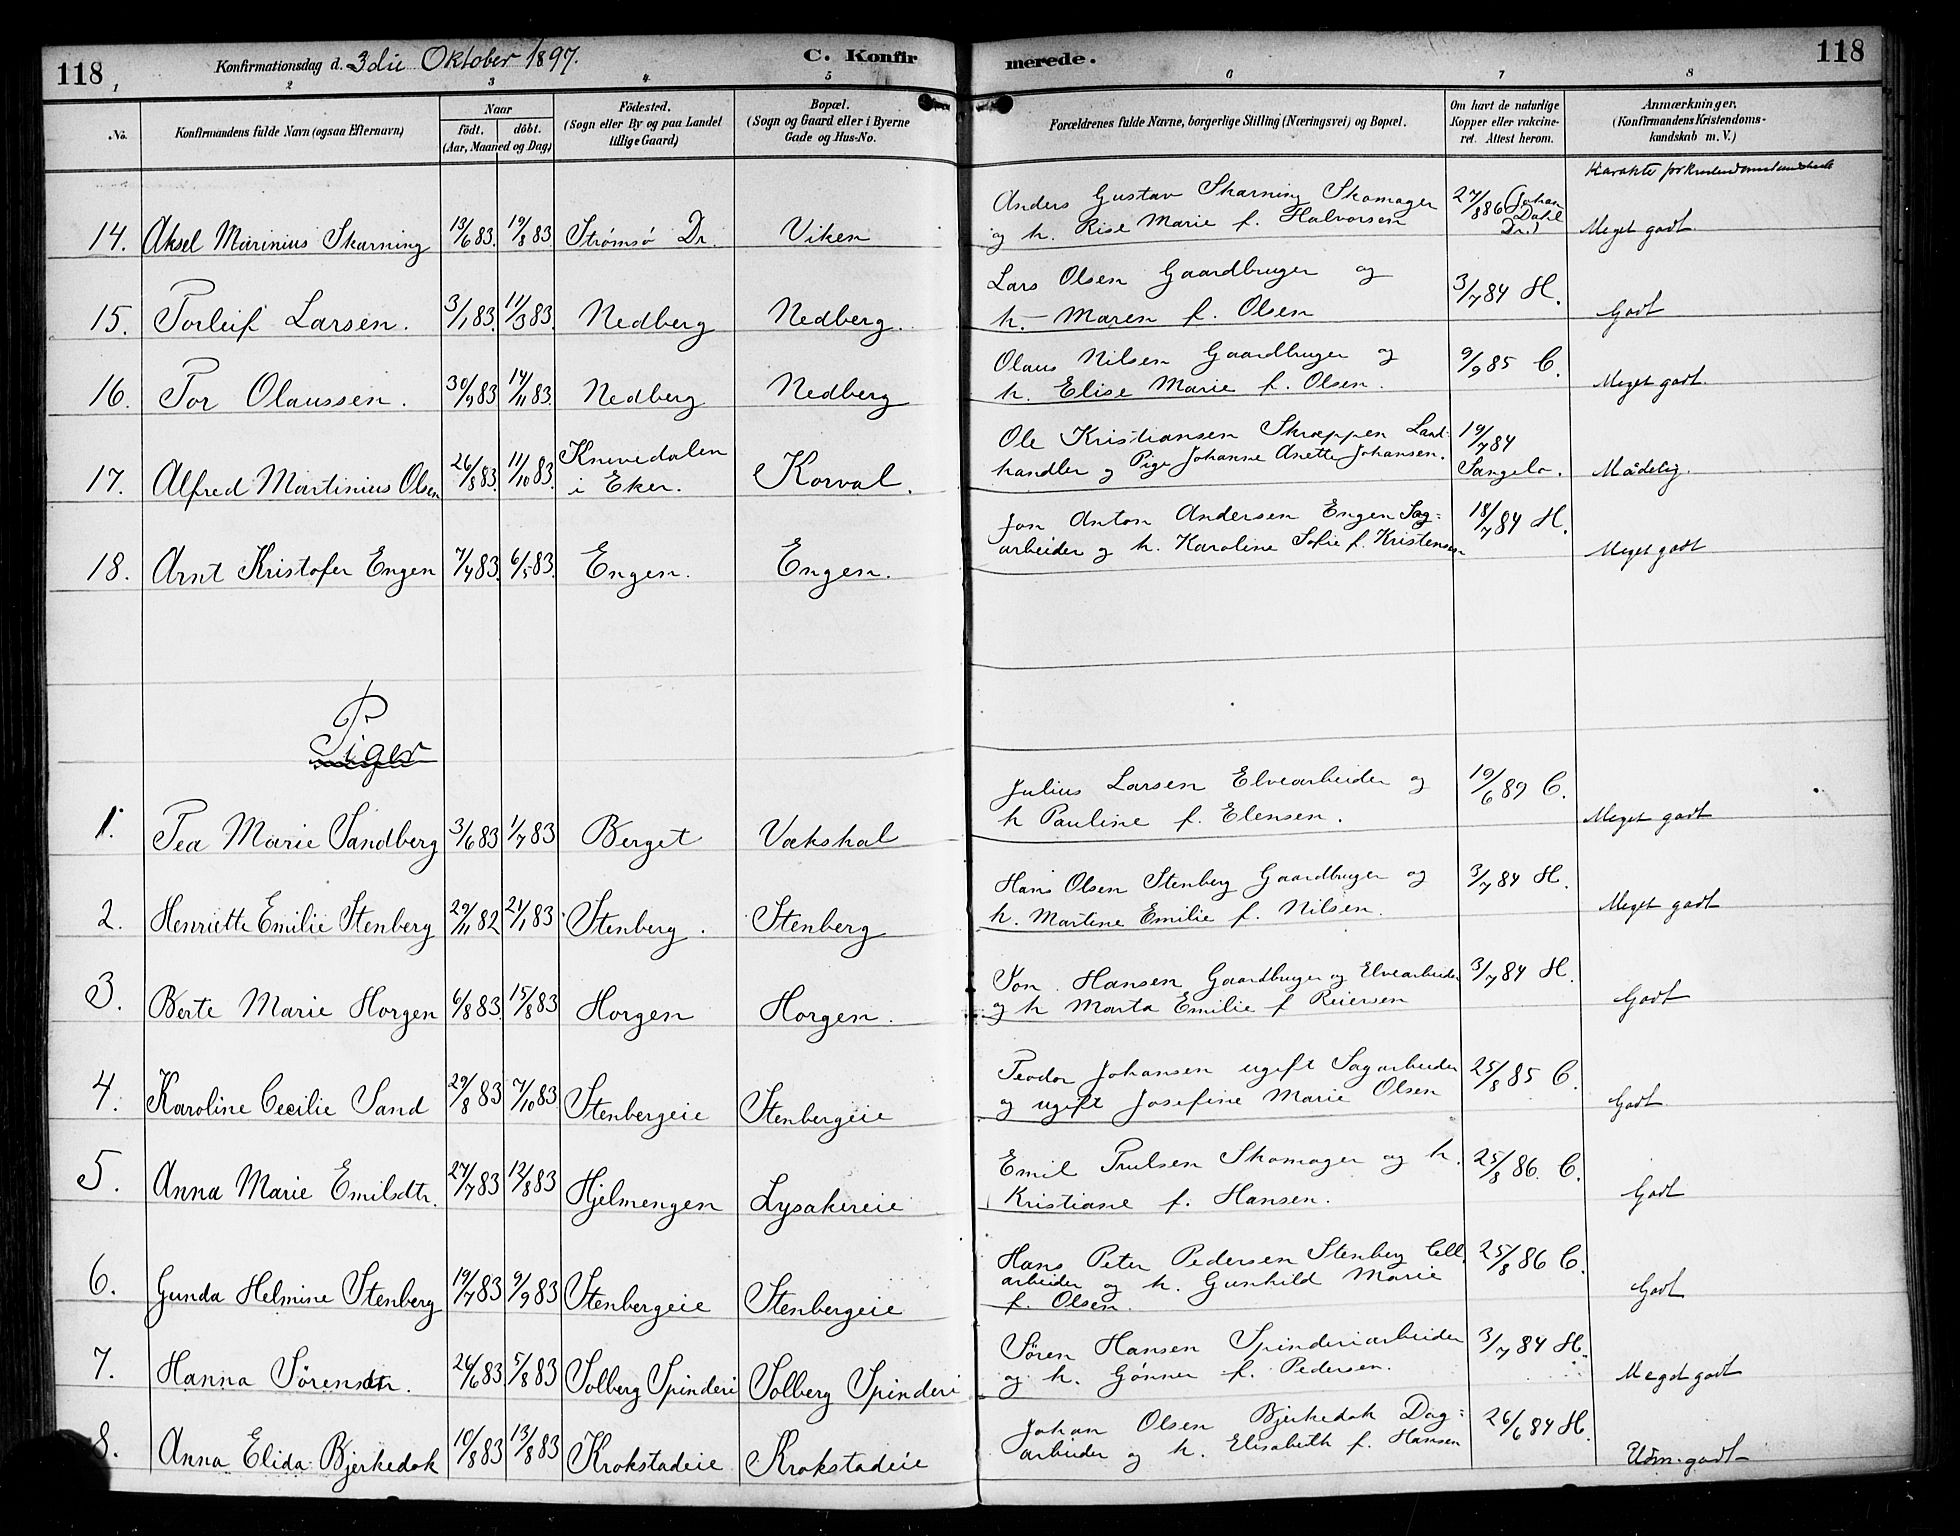 118
Konfirmationsdag d. 3die Oktober 1897.
C. Konfir
merede.
118
1 2 3 4 5 6 7 8
No.
Konfirmandens fulde Navn (ogsaa Efternavn)
Naar
födt. döbt.
(Aar, Maaned og Dag)
Födested.
(Sogn eller By og paa Landet
tillige Gaard)
Bopæl.
(Sogn og Gaard eller i Byerne
Gade og Hus-No.
Forældrenes fulde Navne, borgerlige Stilling (Næringsvei) og Bopæl.
Om havt de naturlige
Kopper eller vakcine-
ret. Attest herom.
Anmærkninger.
(Konfirmandens Kristendoms-
kundskab m. V.)
Karakter for Kristendomskundskab
14. Aksel Marinius Skarning 13/6 83. 19/8 83 Strømsø Dr. Viken
Anders Gustav Skarning Skomager 27/8 86 (Johan
og h. Rise Marie f. Halvorsen Dahl
Dr.) Meget godt.
15. Torleif Larsen. 3/1 83. 11/3 83. Nedberg Nedberg.
Lars Olsen Gaardbruger og 3/7 84 H.
h. Maren f. Olsen Godt
16. Tor Olaussen. 30/9 83 14/11 83. Nedberg Nedberg
Olaus Nilsen Gaardbruger og 9/9 85 C.
h. Elise Marie f. Olsen. Meget godt.
17. Alfred Martinius Olsen 26/8 83. 11/10 83. Knivedalen
i Eker. Korval.
Ole Kristiansen Skræppen Land- 19/7 84
handler og Pige Johanne Anette Johansen. Sangelo. Mådelig.
18. Arnt Kristofer Engen 7/4 83. 6/5 83. Engen. Engen.
Jon Anton Andersen Engen Sag= 18/7 84 H.
arbeider og h. Karoline Sofie f. Kristensen Meget godt
P
Piger
1. Tea Marie Sandberg 3/6 83 1/7 83 Berget Vækshal
Julius Larsen Elvearbeider og 19/6 89 C.
h Pauline f. Elensen. Meget godt
2. Henriette Emilie Stenberg 29/11 82 21/1 83. Stenberg. Stenberg
Hans Olsen Stenberg Gaardbruger og 3/7 84 H.
h. Martine Emilie f. Nilsen. Meget godt
3. Berte Marie Horgen 6/8 83. 15/8 83 Horgen Horgen.
Jon Hansen Gaardbruger og Elvearbeider 3/7 84 H.
og h Marta Emilie f Reiersen Godt
4. Karoline Cecilie Sand 29/8 83 7/10 83. Stenbergeie Stenbergeie
Teodor Johansen ugift Sagarbeider 25/8 85 C.
og ugift Josefine Marie Olsen Godt
5. Anna Marie Emilsdtr. 27/7 83 12/8 83 Hjelmengen Lysakereie
Emil Trulsen Skomager og h. 25/8 86. C.
Kristiane f. Hansen. Godt
6. Gunda Helmine Stenberg 19/7 83 9/9 83 Stenbergeie Stenbergeie
Hans Peter Pedersen Stenberg Cell. 25/8 86 C.
arbeider og h. Gunhild Marie
f. Olsen. Godt
7. Hanna Sörensdtr. 26/6 83 5/8 83 Solberg Spinderi Solberg Spinderi
Sören Hansen Spinderiarbeider 3/7 84 H.
og h. Gønner f. Pedersen. Meget godt
8. Anna Elida Bjerkedok 10/8 83 13/8 83 Krokstadeie Krokstadeie
Johan Olsen Bjerkedok Dag= 26/6 84 H.
arbeider og h. Elisabeth f. Hansen Udm. godt